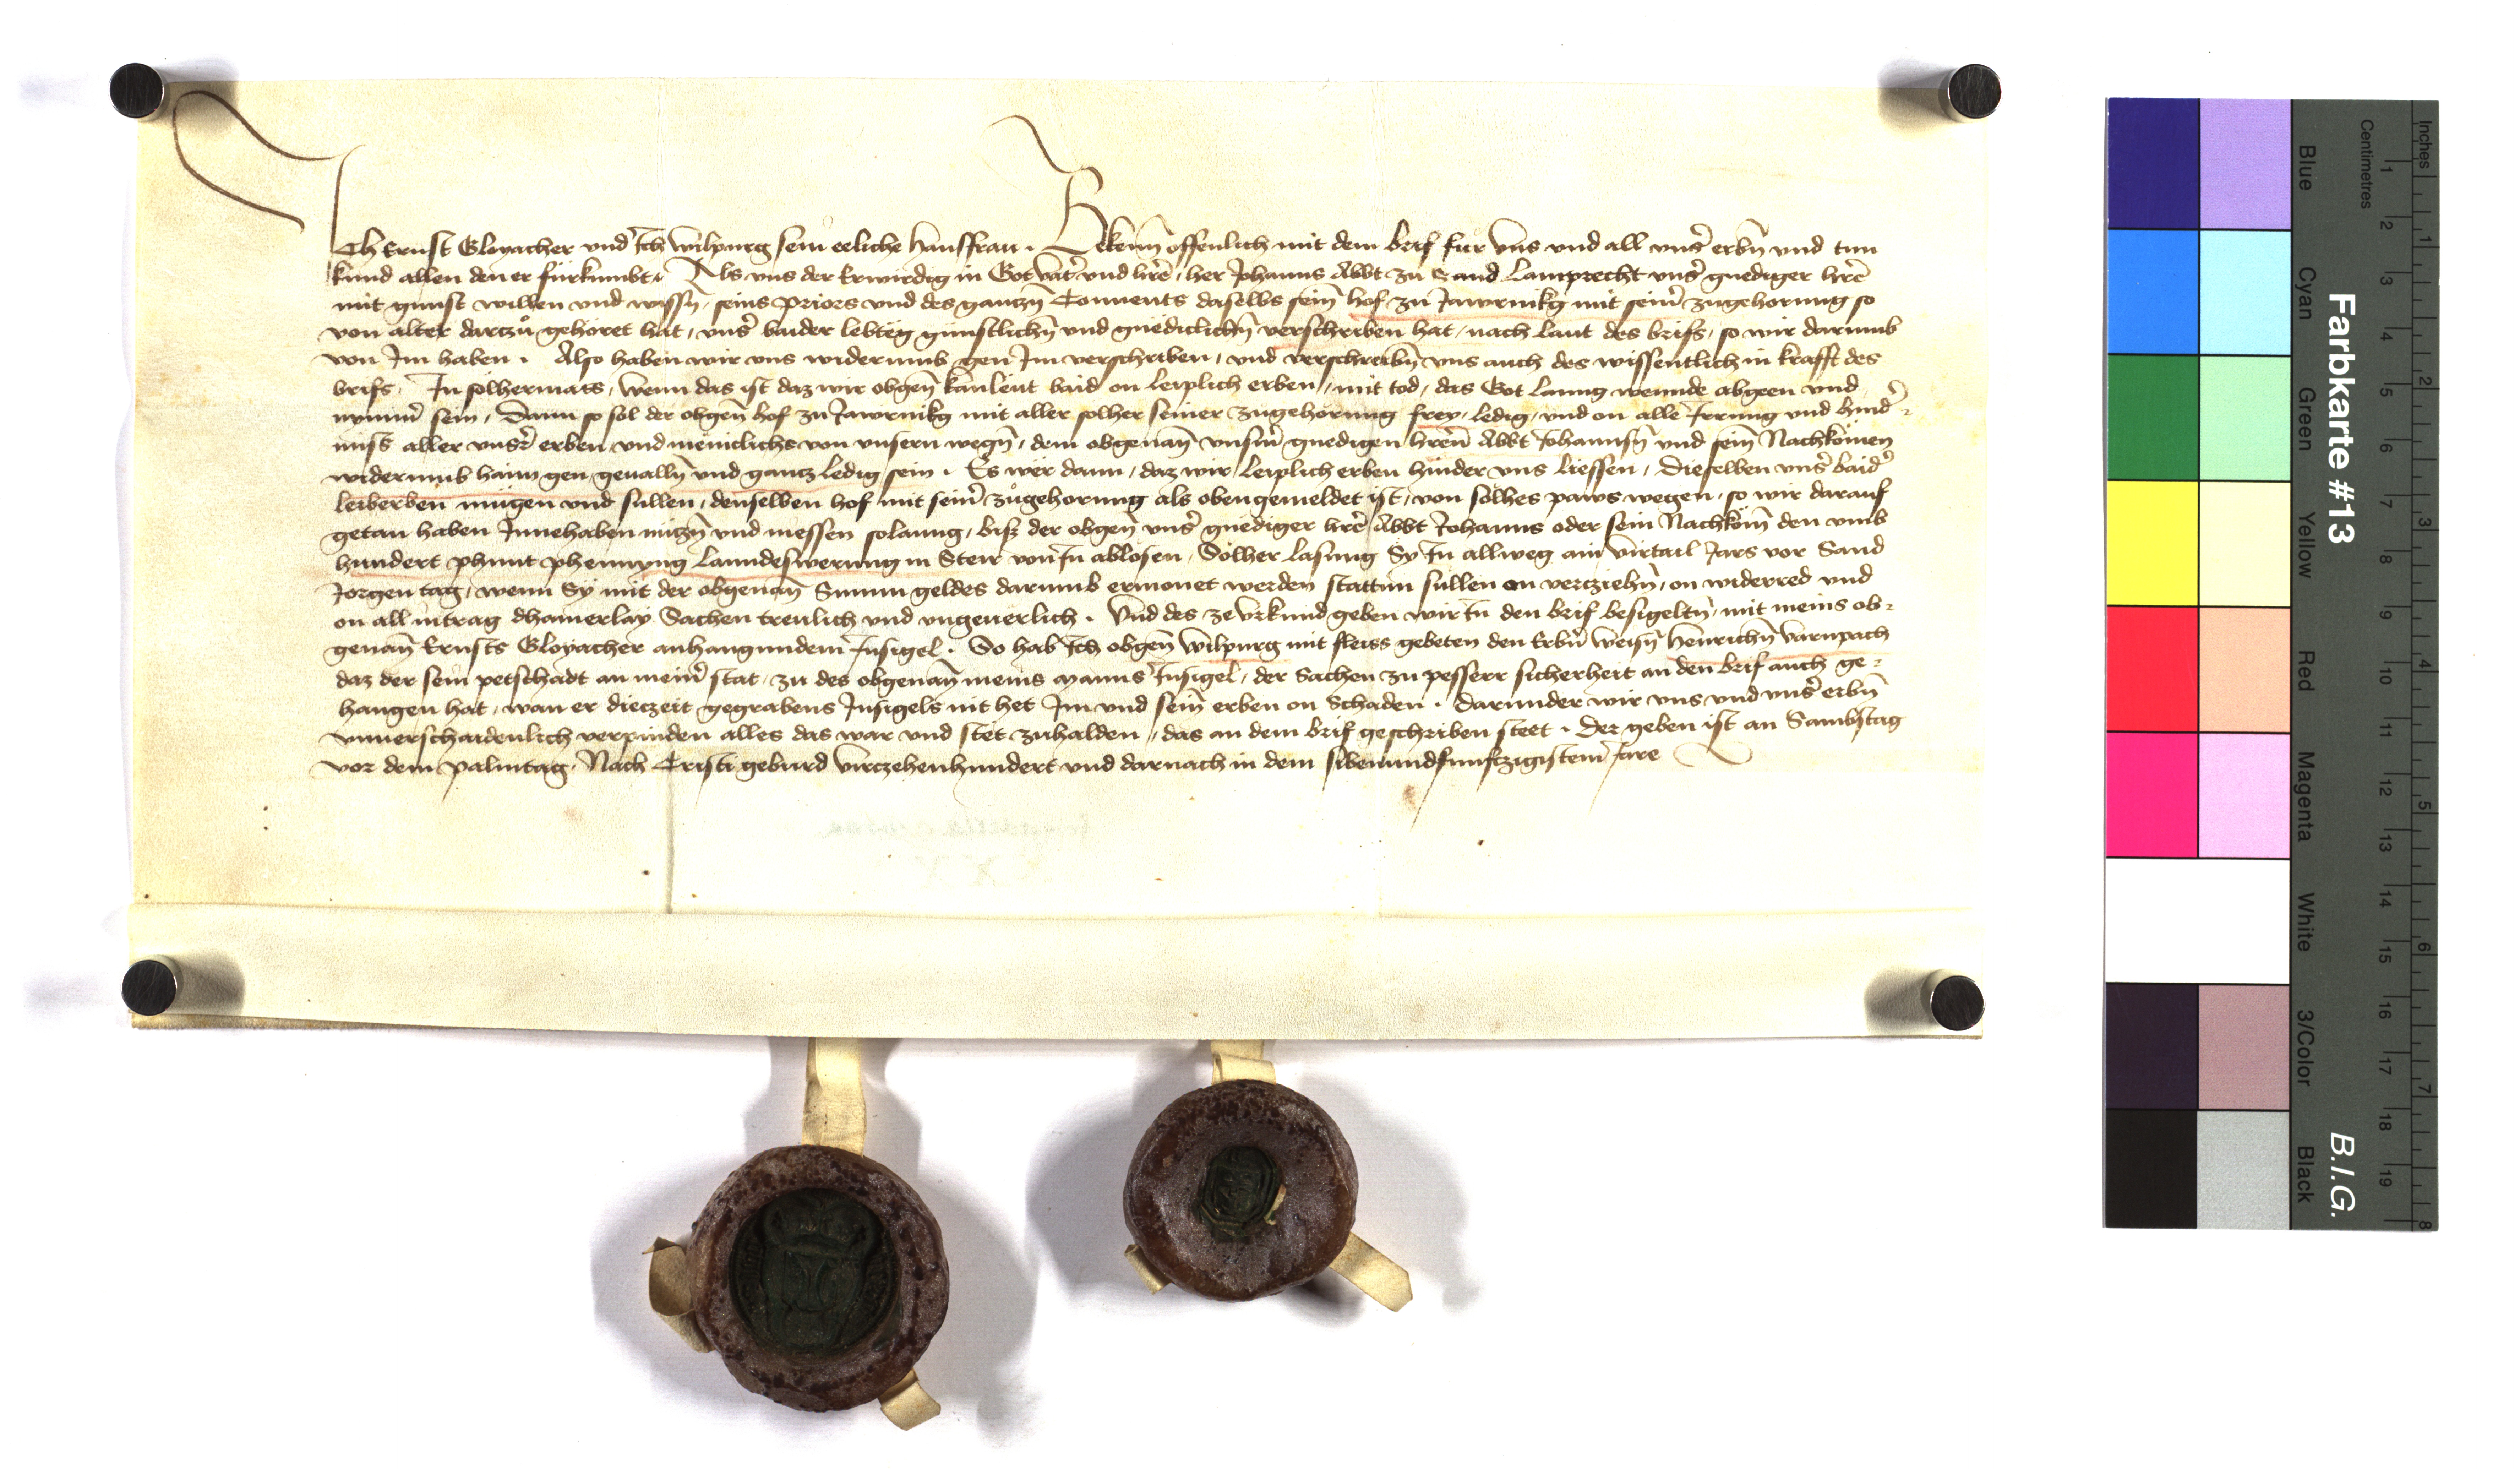 Ich Ernst Gloyacher vnd Ich Wilpurg sein eeliche hausfraw . Bekenn̄ offenlich mit dem brif fur vns vnd all vns̄ erbn̄ vnd tun
kund allen den er fürkumbt . Als vns der Erwirdig in Got vat̄ vnd hr̄e , her Johanns Abbt zu Sand Lamprecht vns̄ gnediger hr̄e
mit gunst willen vnd wissn̄ , seins priors vnd des gantzn̄ Conuents daselbs sein̄ hof zu Jawrnikg mit sein̄ zugehorung so
von alter darczů gehöret hat , vns̄ baider lebtëg günstlichn̄ vnd gnëdiclichn̄ verschriben hat , nach laut des brifs , so wir darumb
von Im haben . Also haben wir vns widerumb gen Im verschriben , vnd verschreibn̄ vns auch des wissentlich in krafft des
brifs . In sölhermass , wenn das ist daz wir obgen̄ kanlëut baid on leiplich erben , mit tod , das Got lanng wennde abgeen vnd
nymm̄ sein , Dann so sol der obgen̄ hof zu Jawrnikg mit aller solher seiner zugehörung frey , ledig , vnd on alle Irrung vnd hind̄-
niss aller vns̄r erben vnd meniclichs von vnsern wegn̄ , dem obgenan̄ vnsm̄ gnedigen hr̄en Abbt Johannsn̄ vnd sein̄ Nachkömen
widerumb haim gen geualln̄ vnd gantz ledig sein . Es wer dann , daz wir leiplich erben hinder vns liessen , Dieselben vns̄ baid̄
leiberben mügen vnd sullen , denselben hof mit sein̄ zůgehorung als oben gemeldet ist , von sölhes paws wegen , so wir darauf
getan haben Innehaben nützn̄ vnd niessen solanng , bisz der obgen̄ vns̄ gnëdiger hr̄e Abbt Johanns oder sein Nachköm̄ den vmb
hundert phunt phennyng lanndeswerung in Steir von In ablösen , Solher lasung Sy In allweg ain virtail Jars vor Sand
Jorgen tag , wenn Sy mit der obgenan̄ Summ geldes darumb ermonet werden stattun sullen on verziehn̄ , on widerred vnd
on all intrag dhainerlay Sachen treulich vnd vngeuerlich . Vnd des ze vrkund geben wir In den brif besigeltn̄ , mit meins ob-
genan̄ Ernsts Gloyacher anhangundem̄ Insigel . So hab Ich obgen̄ Wilpurg mit fleiss gebeten den Erbn̄ weisn̄ Henrichn̄ Varnpach
daz der sein petschadt an mein̄ stat , zu des obgenan̄ meins manns Insigel , der Sachen zu pesserr sicherheit an den brif auch ge-
hangen hat , wan er dieczeit gegrabens Insigels nit het Im vnd sein̄ erben on Schaden . Darunder wir vns vnd vns̄ erbn̄
vnuerschaidenlich verpinden alles das war vnd stët zuhalden , das an dem brif geschriben steet . Der geben ist an Sambstag
vor dem palmtag . Nach Cristi geburd virczehenhundert vnd darnach in dem sibenundfunfczigistem̄ Jare
Farbkarte #13
B.I.G.
Inches
Centimetres
1 2 3 4 5 6 7 8
1 2 3 4 5 6 7 8 9 10 11 12 13 14 15 16 17 18 19
Blue Cyan Green Yellow Red Magenta White 3/Color Black